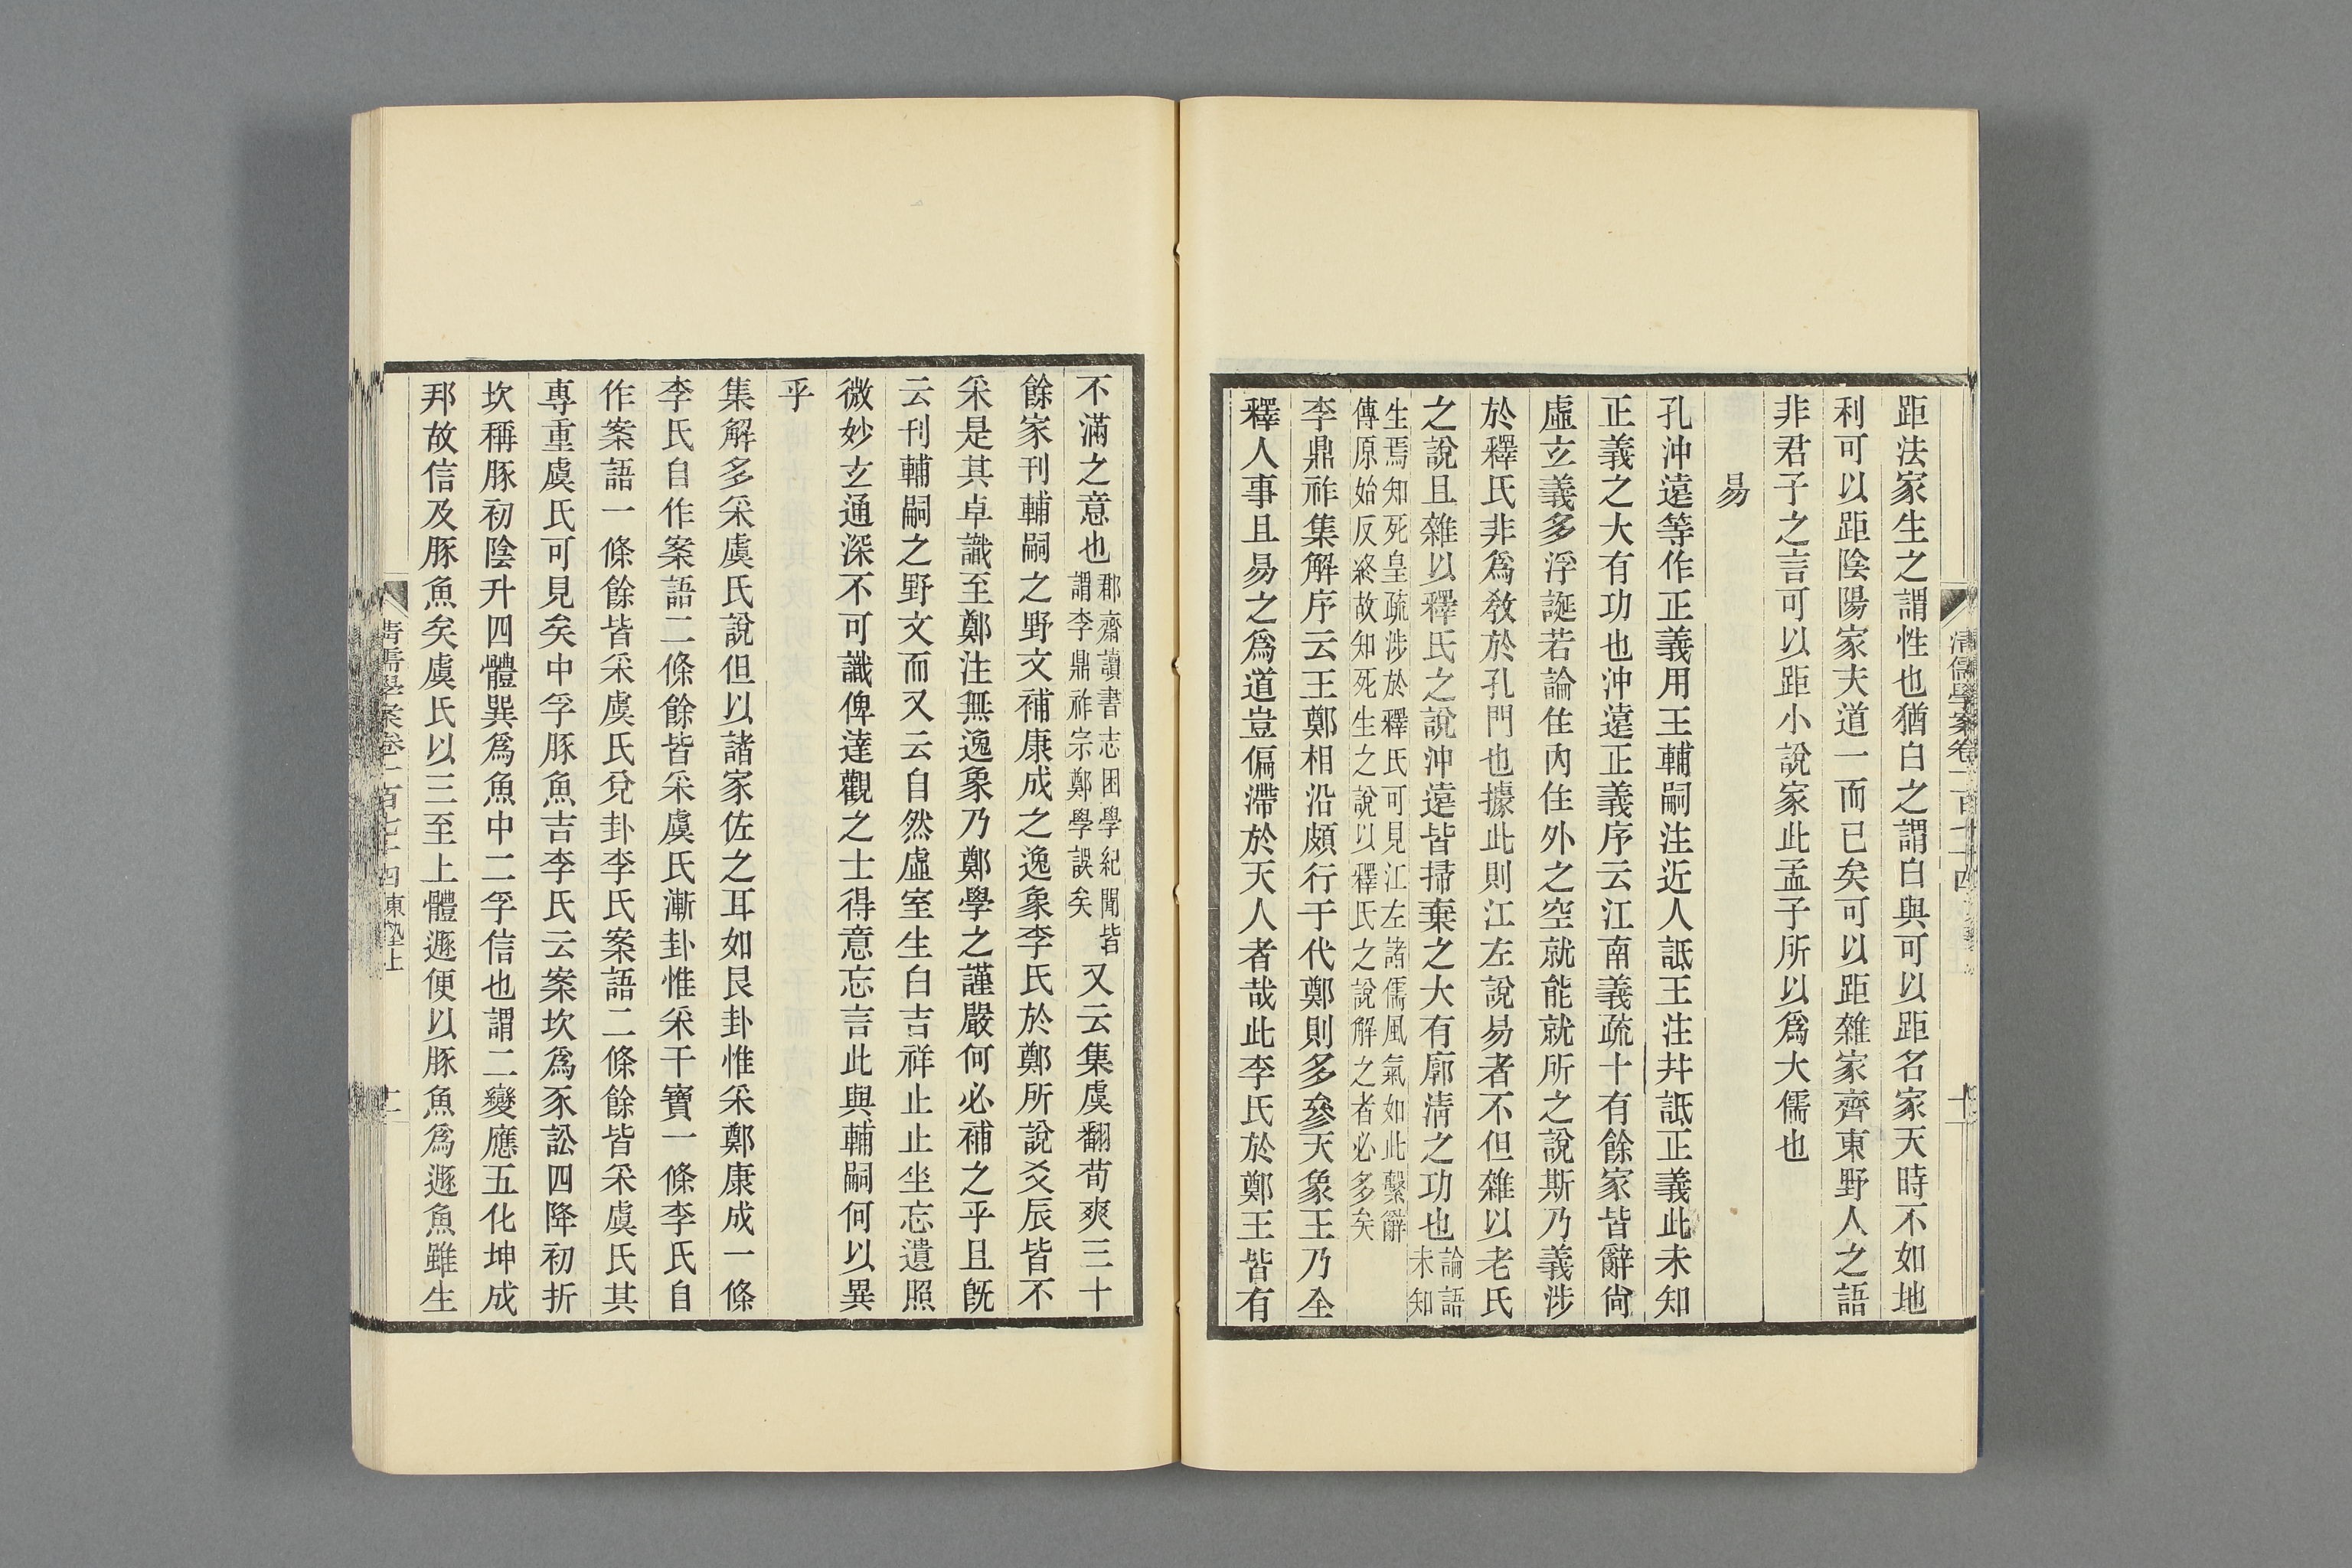 距法家生之謂性也猶白之謂白與可以距名家天時不如地
利可以距陰陽家夫道一而已矣可以距雜家齊東野人之語
非君子之言可以距小說家此孟子所以爲大儒也
易
孔沖遠等作正義用王輔嗣注近人詆王注幷詆正義此未知
正義之大有功也沖遠正義序云江南義疏十有餘家皆辭尙
虛玄義多浮誕若論住內住外之空就能就所之說斯乃義涉
於釋氏非爲敎於孔門也據此則江左說易者不但雜以老氏
之說且雜以釋氏之說沖遠皆掃棄之大有廓淸之功也論語未知
生焉知死皇疏涉於釋氏可見江左諸儒風氣如此繫辭
傳原始反終故知死生之說以釋氏之說解之者必多矣
李鼎祚集解序云王鄭相沿頗行于代鄭則多參天象王乃全
釋人事且易之爲道豈偏滯於天人者哉此李氏於鄭王皆有
清儒學案卷一百七十四
不滿之意也郡齋讀書志困學紀聞皆謂李鼎祚宗鄭學誤矣又云集虞翻荀爽三十
餘家刊輔嗣之野文補康成之逸象李氏於鄭所說爻辰皆不
采是其卓識至鄭注無逸象乃鄭學之謹嚴何必補之乎且旣
云刊輔嗣之野文而又云自然虛室生白吉祥止止坐忘遺照
微妙玄通深不可識俾達觀之士得意忘言此與輔嗣何以異
乎
集解多采虞氏說但以諸家佐之耳如艮卦惟采鄭康成一條
李氏自作案語二條餘皆采虞氏漸卦惟采干寶一條李氏自
作案語一條餘皆采虞氏兌卦李氏案語二條餘皆采虞氏其
專重虞氏可見矣中孚豚魚吉李氏云案坎爲豕訟四降初折
坎稱豚初陰升四體巽爲魚中二孚信也謂二變應五化坤成
邦故信及豚魚矣虞氏以三至上體遯便以豚魚爲遯魚雖生
清儒學案卷一百七十四東塾上